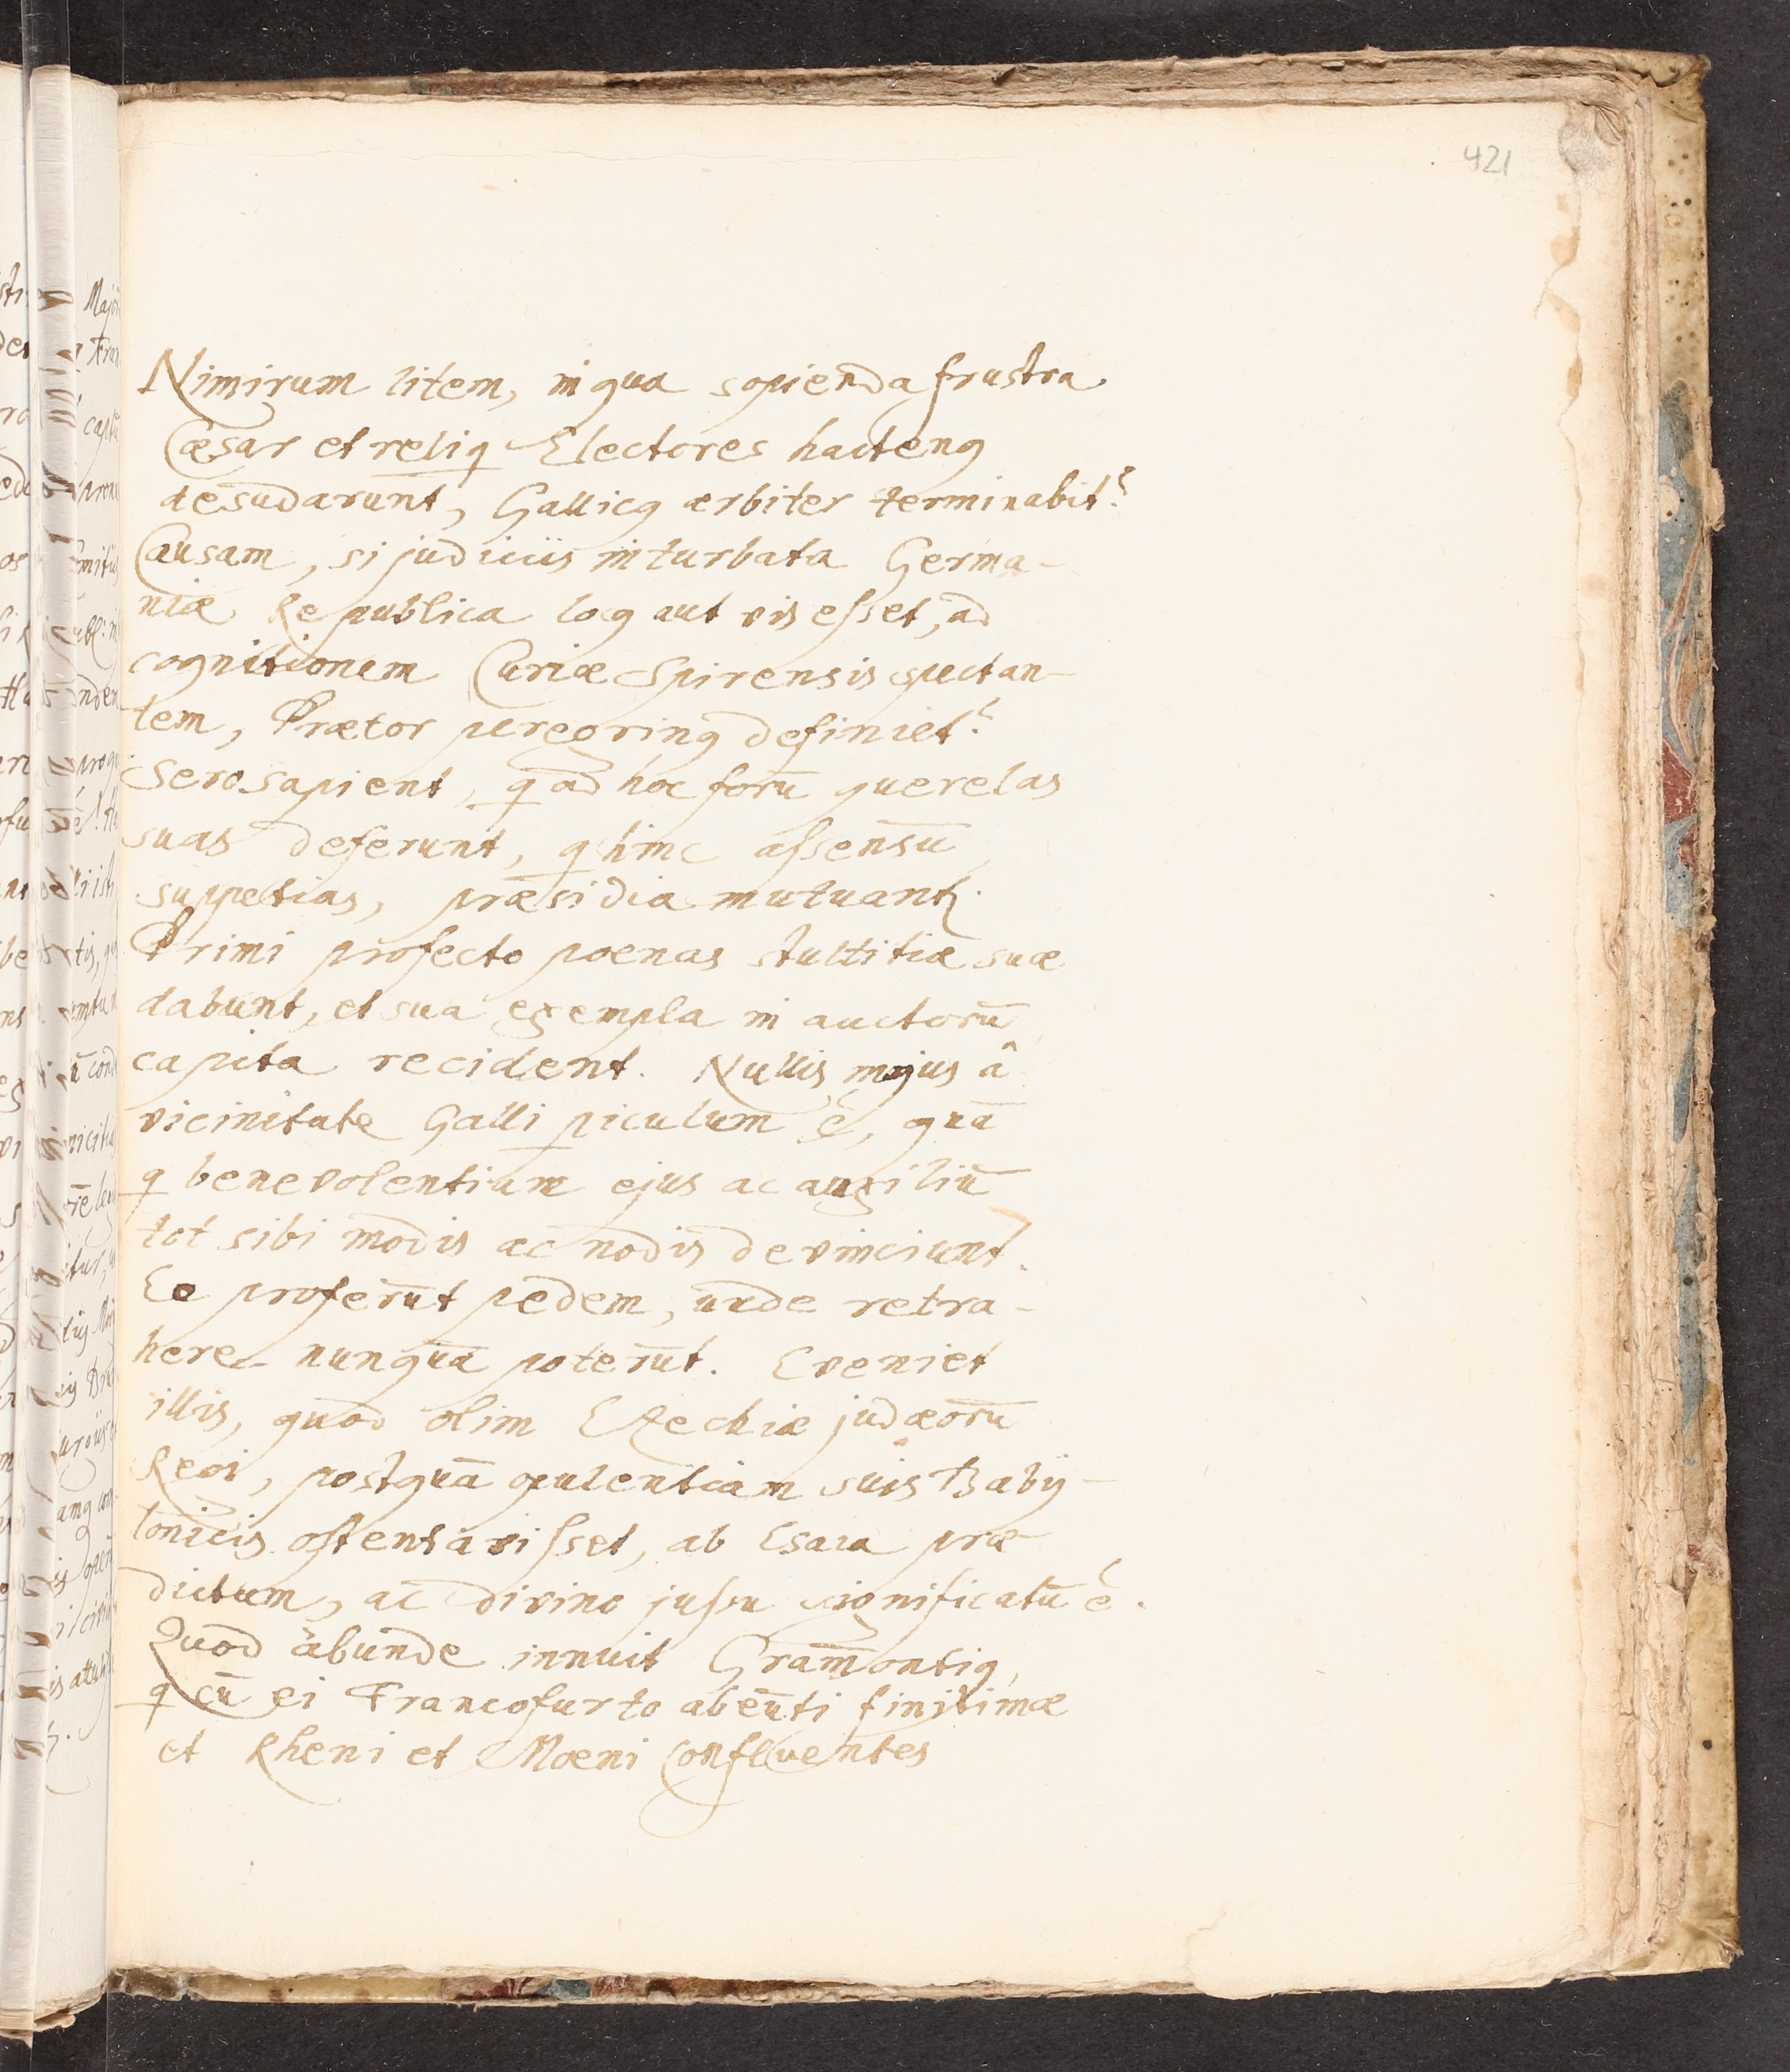 421
Nimirum litem, in qua sopienda frustra
Cæsar et reliq̃ Electores hactenq
desudarunt, Gallicq arbiter terminabit?
Causam, si judiciis in turbata Germa-
niæ Republica locq aut vis esset, ad
cognitionem Curiæ Spirensis spectan-
tem, Prætor peregrinq definiet?
Sero sapient, q̃ ad hoc forū querelas
suas deferunt, q̃ hinc assensū
suppetias, præsidia mutuantꝛ.
Primi profecto poenas stultitiæ suæ
dabunt, et sua exempla in auctorū
capita recident. Nullis majus â
vicinitate Galli piculum ē, quā
q̃ benevolentiam ejus ac auxiliū
tot sibi modis ac nodis devinciunt.
Eo proferūt pedem, unde retra-
here nunquā poterūt. Eveniet
illis, quod olim Ezechiæ judæorū
Regi, postquā opulentiam suis Baby-
lonicis ostentavisset, ab Esaia præ-
dictum, ac divino jussu significatū ē.
Quod abunde innuit Gram̄ontiq,
q̃ cū ei Francofurto abeūti finitimæ
et Rheni et Moeni confluentes